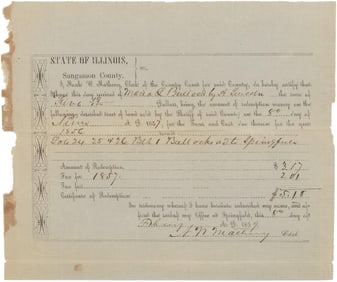 STATE OF ILLINOIS,
Sangamon County. } ss.
I, Noah W. Matheny, Clerk of the County Court for said County, do hereby certify that
I have this day received of Maria L Bullock by A Lincoln the sum of
Five Dollars, being the amount of redemption money on the
following described tract of land sold by the Sheriff of said County on the 8 day of
A. D. 1857, for the Taxes and Cost due thereon for the year
1856
Lots 24. 25 & 26 Blk 1 Bullocks Springfield
Amount of Redemption, $3.17
Tax for 1857. 2.01
Tax for
$5.18
In testimony whereof I have hereunto subscribed my name, and af-
fixed the seal of my Office at Springfield, this day of
A. D. 1859
N W Matheny Clerk